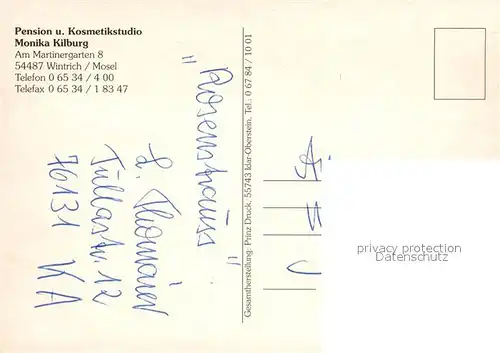 Pension u. Kosmetikstudio
Monika Kilburg
Am Martinergarten 8
54487 Wintrich / Mosel
Telefon 0 65 34 / 4 00
Telefax 0 65 34 / 1 83 47
Gesamtherstellung: Prinz Druck, 55743 Idar-Oberstein, Tel. 0 67 84 / 10 01
"Rosenstrauss"
Tullastr. 12
76131 KA
privacy protection